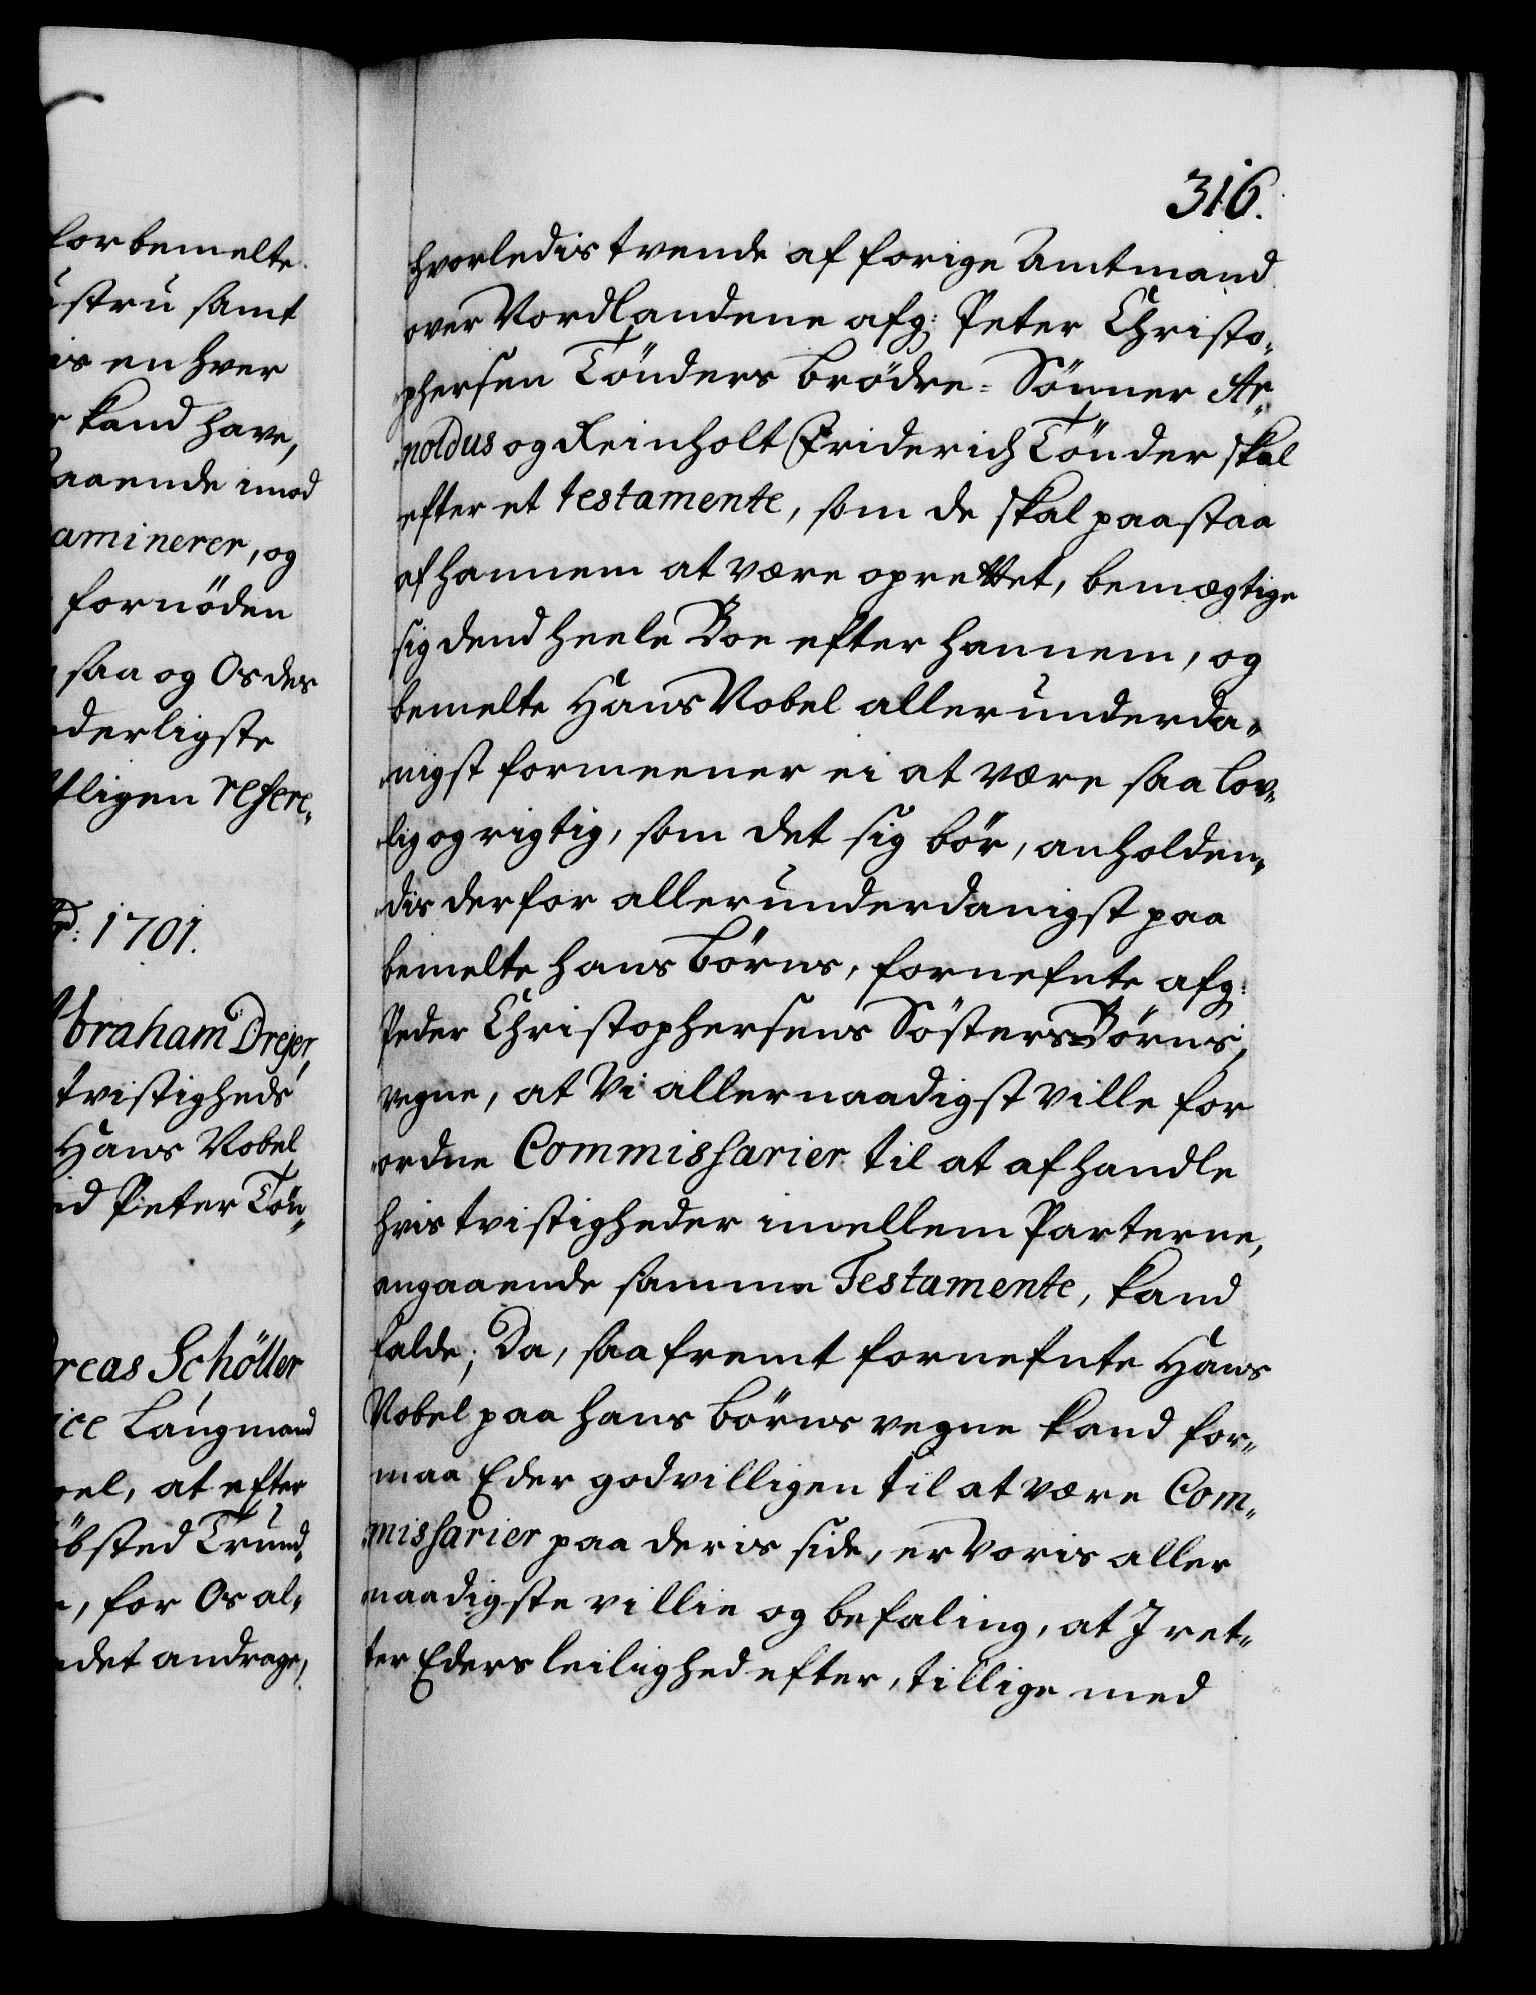 forbemelte
ustru samt
is en hver
r kand have,
aaende imod
aminerer, og
fornöden
saa og Os des
derligste
tligen refere„
1701.
Abraham Dreyer,
tvistigheds
Hans Nobel
d Peter Tön„
dreas Schöller
ice Laugmand
bel, at efter
öbsted Trund„
, for Os al„
det andrage,
316.
hvorledis tvende af forige Amtmand
over Nordlandene afg: Peter Christo„
„phersen Tönders Brödre-Sönner Ar„
„noldus og Reinholt Friderich Tönder skal
efter et testamente, som de skal paastaa
af hannem at være oprettet, bemægtige
sig dend heele Boe efter hannem, og
bemelte Hans Nobel allerunderda„
„nigst formeener ei at være saa lov„
„lig og rigtig, som det sig bör, anholden„
„dis derfor allerunderdanigst paa
bemelte hans Börns, fornefnte afg:
Peder Christophersens Sösters Börns,
vegne, at Vi allernaadigst ville for
„ordne Commissarier til at afhandle
hvis tvistigheder imellem Parterne,
angaaende samme Testamente, kand
falde; Da, saafremt fornefnte Hans
Nobel paa hans Börns vegne kand for„
maa Eder godvilligen til at være Com„
„missarier paa deris side, er Voris aller
naadigste villie og befaling, at I ret„
ter Eders leilighed efter, tillige med